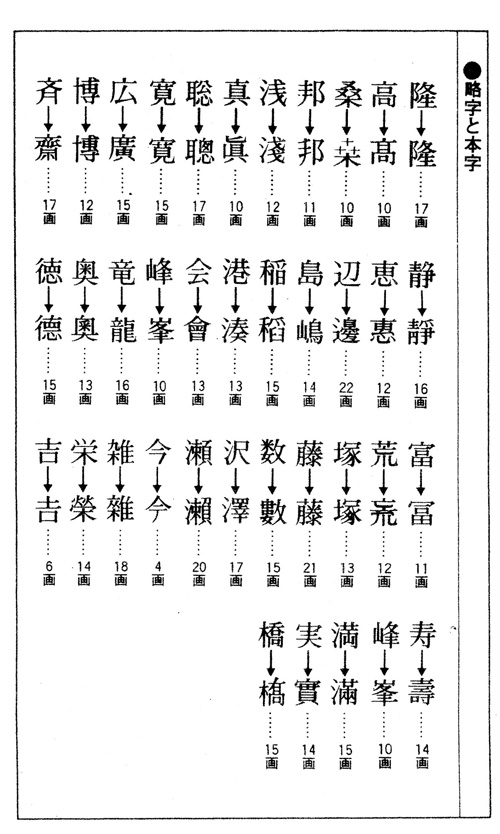 ●略字と本字
隆→隆……17画
高→髙……10画
桑→桒……10画
邦→邦……11画
浅→淺……12画
真→眞……10画
聡→聰……17画
寛→寬……15画
広→廣……15画
博→博……12画
斉→齋……17画
静→靜……16画
恵→惠……12画
辺→邊……22画
島→嶋……14画
稲→稻……15画
港→湊……13画
会→會……13画
峰→峯……10画
竜→龍……16画
奥→奧……13画
徳→德……15画
富→冨……11画
荒→荒……12画
塚→塚……13画
藤→藤……21画
数→數……15画
沢→澤……17画
瀬→瀨……20画
今→今……4画
雑→雜……18画
栄→榮……14画
吉→𠮷……6画
寿→壽……14画
峰→峯……10画
満→滿……15画
実→實……14画
橋→槗……15画